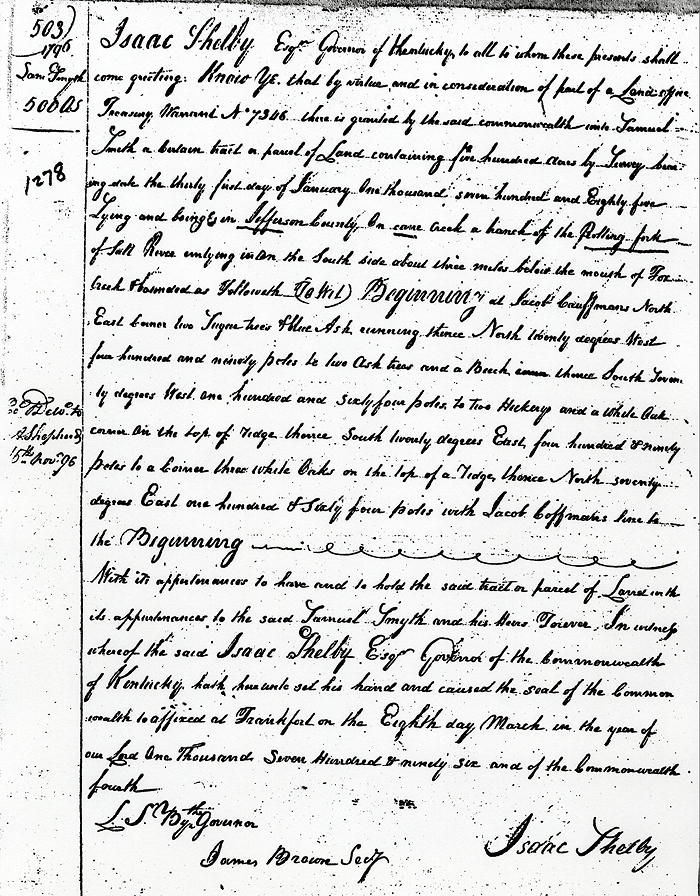 503)
1796
Sam Smyth
500 As
1278
Del'd to
A Shepherd
15th Nov. 96
Isaac Shelby Esqr Governor of Kentucky, to all to whom these presents shall
come greeting: Know Ye, that by virtue and in consideration of part of a Land office
Treasury Warrant No 7346 there is granted by the said commonwealth unto Samuel
Smyth a Certain tract or parcel of Land containing five hundred acres by Survey bear-
ing date the thirty first day of January One thousand seven hundred and Eighty five
Lying and being in Jefferson County On cane Creek a branch of the Rolling fork
of Salt River on the South side about three miles below the mouth of Fox
Creek & bounded as Followeth (To Wit) Beginning at Jacob Cauffmans North
East Corner two Sugar trees & blue Ash running thence North twenty degrees West
four hundred and ninety poles to two Ash trees and a Beech thence South Seven-
ty degrees West one hundred and sixty four poles to two Hickorys and a White Oak
corner on the top of ridge thence South twenty degrees East, four hundred & ninety
poles to a Corner three white Oaks on the top of a ridge, thence North seventy
degrees East one hundred & Sixty four poles with Jacob Coffmans line to
the Beginning
With its appurtenances to have and to hold the said tract or parcel of Land with
its appurtenances to the said Samuel Smyth and his Heirs Forever, In witness
whereof the said Isaac Shelby Esqr Governor of the Commonwealth
of Kentucky hath hereunto set his hand and caused the seal of the Common
wealth to affixed at Frankfort on the Eighth day March in the year of
our Lord One Thousand Seven Hundred & ninety six and of the Commonwealth
fourth
L. S. By the Governor
Isaac Shelby
James Brown Secy